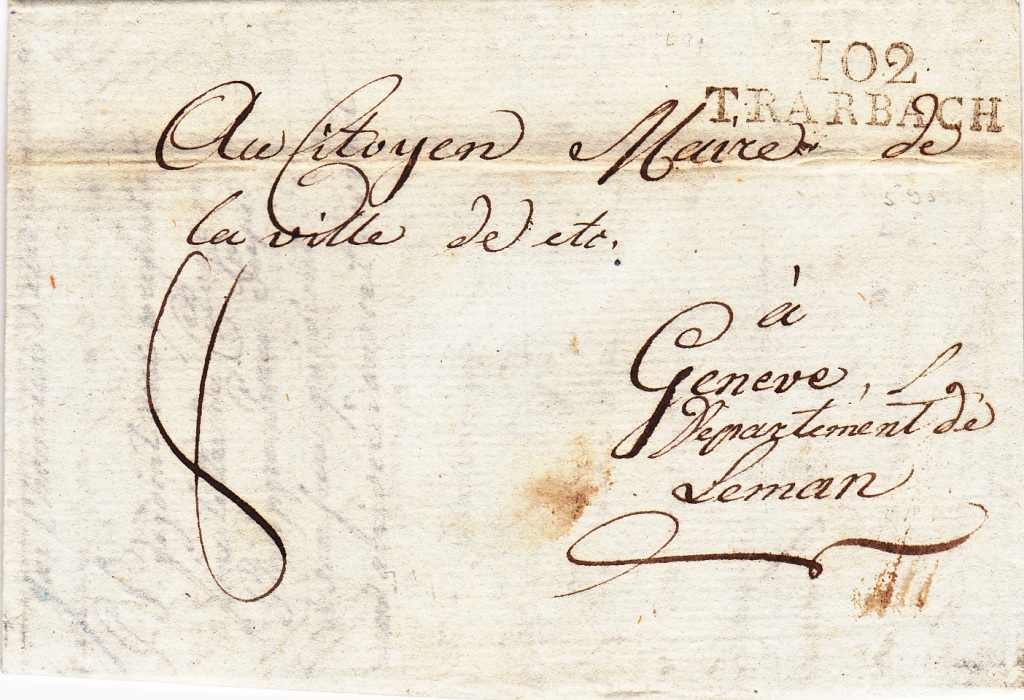 102
TRARBACH
Au Citoyen Maire de
la ville de etc.
8
à
Geneve,
Departement de
Leman